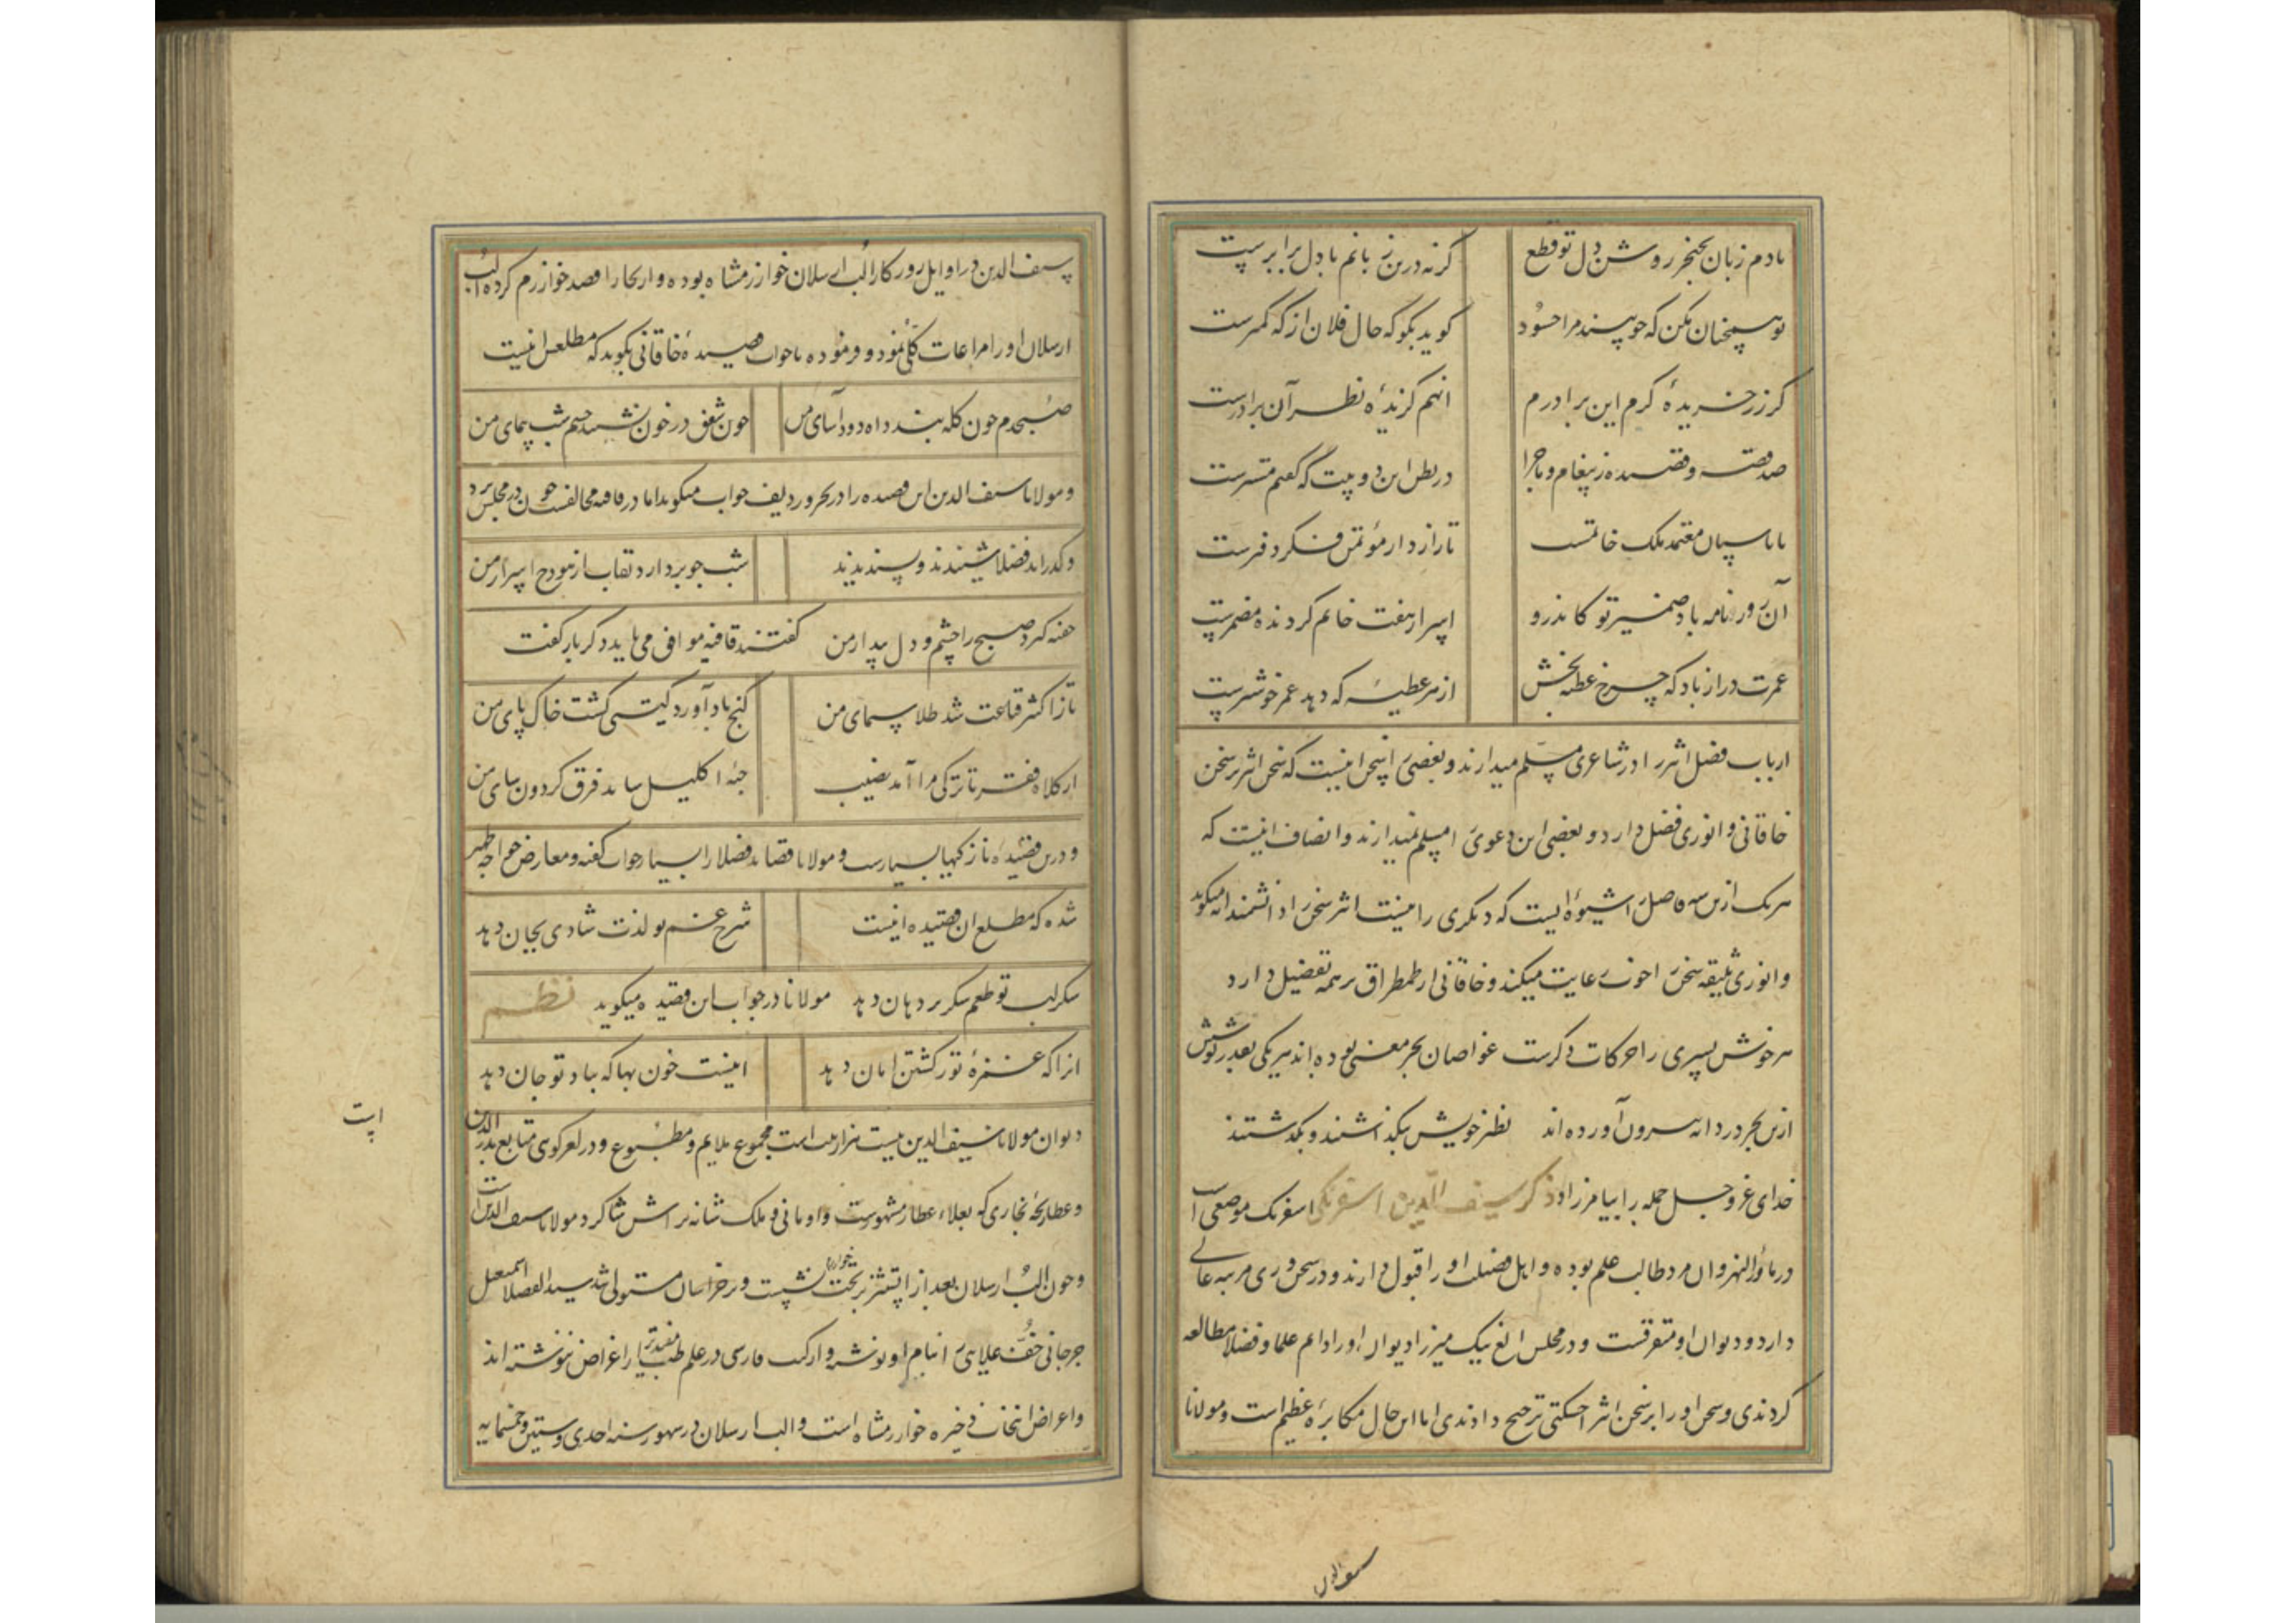 بادم زبان بخنجر روشن دل تو قطع گر نه درین زبانم با دل برابرست
تو همچنان مکن که چو بیند مرا حسود گوید بگو که حال فلان از که کمترست
گر زر خریده کرم این برادرم آنهم گزیده نظر آن برادرست
صد قصه و قصیده ز پیغام و ماجرا در بطن این دو بیت که گفتم مسترست
معتمد ملک خاتمست تا رازدار مؤتمن فکر دفترست
آن روزنامه باد ضمیر تو کاندرو اسرار هفت خاتم گردنده مضمرست
عمرت دراز باد که چرخ عطیه بخش از هر عطیه که دهد عمر خوشترست
ارباب فضل اثیر را در شاعری مسلم میدارند و بعضی را سخن اینست که سخن اثیر بر سخن
خاقانی و انوری فضل دارد و بعضی این دعوی را مسلم نمیدارند و انصاف اینست که
هر یک ازین سه فاضل را شیوه ایست که دیگری را نیست اثیر سخن را دانشمندانه میگوید
و انوری سلیقه سخن را خوب رعایت میکند و خاقانی از طمطراق بر همه تفضیل دارد
هر خوش پسری را حرکات دگرست غواصان بحر معنی بوده اند هر یکی بقدر کوشش
ازین بحر دردانه بیرون آورده اند نظر خویش بگذاشتند و بگذشتند
خدای عز و جل جمله را بیامرزاد ذکر سیف الدین اسفرنکی اسفرنک موضعی است
در ماوراء النهر و ان مرد طالب علم بوده و اهل فضیلت او را قبول دارند و در سخن وری مرتبه عالی
دارد و دیوان او متعرفست و در مجلس الغ بیک میرزا دیوان او را دایم علما و فضلا مطالعه
کردندی و سخن او را بر سخن اثیر اخسیکتی ترجیح دادندی اما این حال مکابره عظیم است و مولانا
سیف الدین
سیف الدین در اوایل روزگار الب ارسلان خوارزمشاه بوده و از بخارا قصد خوارزم کرده الب
ارسلان او را مراعات کلی نمود و فرموده تا جواب قصیده خاقانی بگوید که مطلعش اینست
صبحدم چون کله بندد آه دود آسای من چون شفق در خون نشیند چشم شب پیمای من
و مولانا سیف الدین این قصیده را در بحر و ردیف جواب میگوید اما در قافیه مخالفست چون در مجلس برد
و گذراند فضلا شنیدند و پسندیدند شب چو بردارد نقاب از هودج اسرار من
خفته گیرد صبح را چشم و دل بیدار من گفتند قافیه موافق می باید دگر بار گفت
تا ز اکسیر قناعت شد طلا سیمای من گنج باد آورد گیتی گشت خاک پای من
از کلاه فقر تا ترکی مرا آمد نصیب جبه اکلیل ساید فرق گردون سای من
و درین قصیده نازکیها بسیارست و مولانا قصاید فضلا را بسیار جواب گفته و معارض خواجه ظهیر
شده که مطلع ان قصیده اینست شرح غم تو لذت شادی بجان دهد
شکر لب تو طعم شکر در دهان دهد مولانا در جواب این قصیده میگوید نظم
انرا که غمزه تو ز کشتن امان دهد اینست خون بها که بیاد تو جان دهد
دیوان مولانا سیف الدین بیست هزار بیت است مجموع ملایم و مطبوع و در لغزگوی متابع بدر الدین
و عطار بخاری که بعلاء عطار مشهورست و اوبانی و ملک شانه تراش شاگرد مولانا سیف الدین است
و چون الب ارسلان بعد از اتسز بتخت خوارزم نشست و بر خراسان مستولی شد سید الفضلا اسمعیل
جرجانی خف علایی را بنام او نوشت و ارکب فارسی در علم طب مفیدتر از اغراض ننوشته اند
و اغراض انتخاب ذخیره خوارزمشاه است و الب ارسلان در شهور سنه احدی و ستین و خمسمایه
است